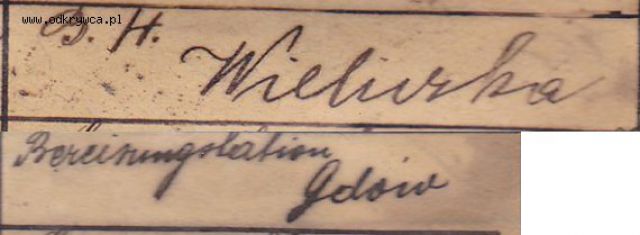 www.odkrywca.pl
B. H.
Wieliczka
Bereisungstation
Gdów